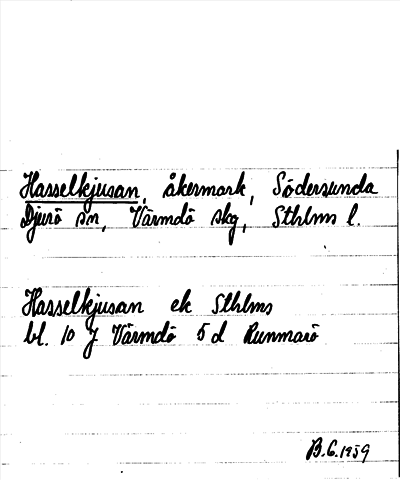 Hasselkjusan, åkermark, Södersunda
Djurö sn, Värmdö skg, Sthlms l.
Hasselkjusan ek Sthlms
bl. 10 J Värmdö 5 d Runmarö
B.G. 1959